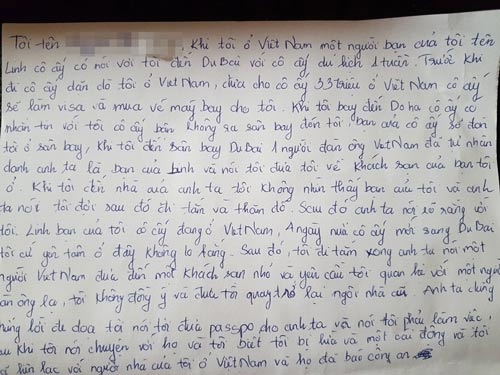 Tôi tên . Khi tôi ở Việt Nam một người bạn của tôi tên
Linh cô ấy có nói với tôi đến DuBai với cô ấy du lịch 1 tuần. Trước khi
đi cô ấy dẫn dò tôi ở Việt Nam, đưa cho cô ấy 33 triệu ở Việt Nam cô ấy
sẽ làm visa và mua vé máy bay cho tôi. Khi tôi bay đến Doha cô ấy có
nhắn tin với tôi cô ấy bận không ra sân bay đến tôi, bạn của cô ấy sẽ đón
tôi ở sân bay, Khi tôi đến sân bay DuBai 1 người đàn ông Việt Nam đã tự nhân
danh anh ta là bạn của Linh và nói tôi đưa tôi về khách sạn của bạn tôi
ở. Khi tôi đến nhà của anh ta tôi không nhìn thấy bạn của tôi và anh
ta nói tôi đợi sau đó đi tắm và thăm dò. Sau đó anh ta nói rõ ràng với
tôi. Linh bạn của tôi cô ấy đang ở Việt Nam, 4 ngày nữa cô ấy mới sang DuBai
tôi cứ yên tâm ở đây không lo lắng. Sau đó, tôi đi tắm xong anh ta nói một
người Việt Nam đưa đến một khách sạn nhỏ và yêu cầu tôi quan hệ với một người
đàn ông lạ, tôi không đồng ý và đưa tôi quay trở lại ngôi nhà cũ. Anh ta cùng
lời đe doạ tôi nói tôi đưa passpo cho anh ta và nói tôi phải làm việc,
sau khi tôi nói chuyện với họ và tôi biết tôi bị lừa và một cái động và tôi
liên lạc với người nhà của tôi ở Việt Nam và họ đã báo công an